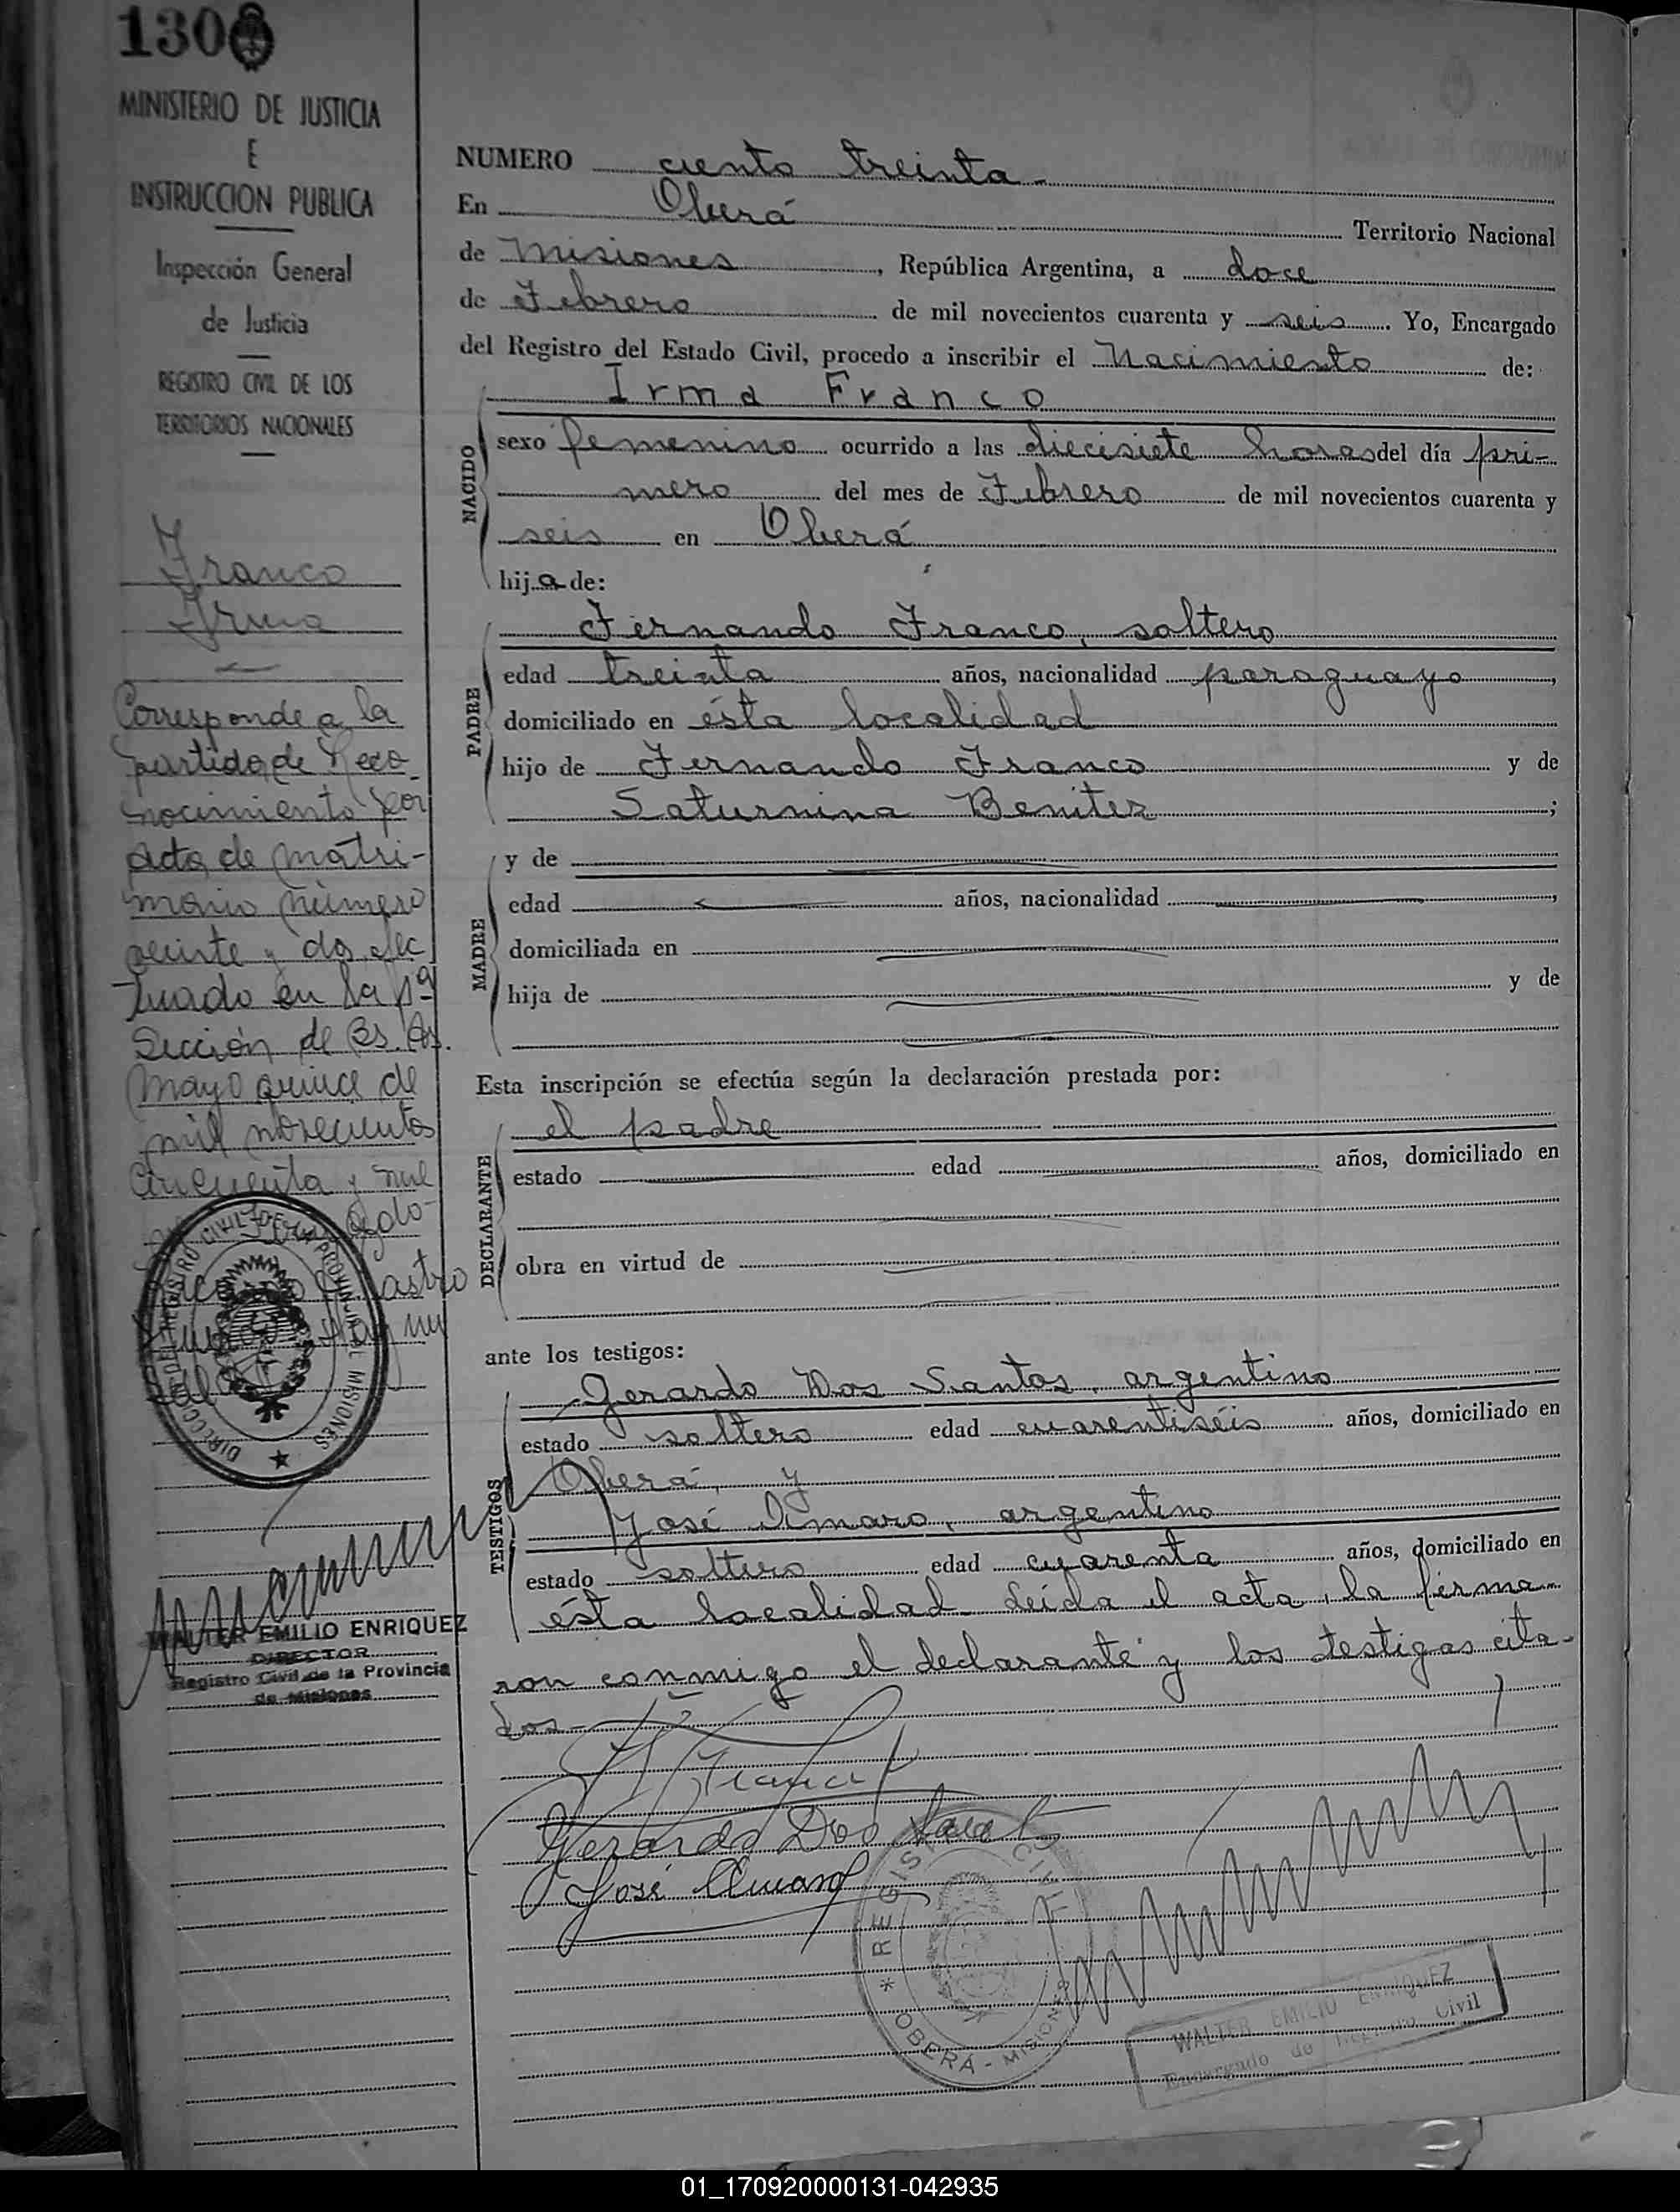 130
MINISTERIO DE JUSTICIA
E
INSTRUCCION PUBLICA
Inspección General
de Justicia
REGISTRO CIVIL DE LOS
TERRITORIOS NACIONALES
Franco
Irma
Corresponde a la
partida de Reco-
nocimiento por
acta de matri-
monio número
veinte y dos efec
tuado en la 1ª
Sección de Bs. As.
Mayo quince de
mil novecientos
cincuenta y
DIRECCION DEL REGISTRO CIVIL DE LA PROVINCIA DE MISIONES
WALTER EMILIO ENRIQUEZ
DIRECTOR
Registro Civil de la Provincia
de Misiones
NUMERO ciento treinta-
En Oberá Territorio Nacional
de Misiones, República Argentina, a doce
de Febrero de mil novecientos cuarenta y seis. Yo, Encargado
del Registro del Estado Civil, procedo a inscribir el Nacimiento de:
Irma Franco
NACIDO
sexo femenino ocurrido a las diecisiete horas del día pri-
mero del mes de Febrero de mil novecientos cuarenta y
seis en Oberá
hija de:
PADRE
Fernando Franco, soltero
edad treinta años, nacionalidad paraguayo,
domiciliado en ésta localidad
hijo de Fernando Franco y de
Saturnina Benitez;
MADRE
y de
edad años, nacionalidad
domiciliada en
hija de y de
Esta inscripción se efectúa según la declaración prestada por:
DECLARANTE
el padre
estado edad años, domiciliado en
obra en virtud de
ante los testigos:
TESTIGOS
Gerardo Dos Santos, argentino
estado soltero edad cuarentiséis años, domiciliado en
Oberá, y
José, argentino
estado soltero edad cuarenta años, domiciliado en
ésta localidad. Leída el acta, la firma-
ron conmigo el declarante y los testigos cita-
dos-
Gerardo Dos Santos
José
REGISTRO CIVIL
OBERÁ - MISIONES
WALTER EMILIO ENRIQUEZ
Encargado de Registro Civil
01_170920000131-042935